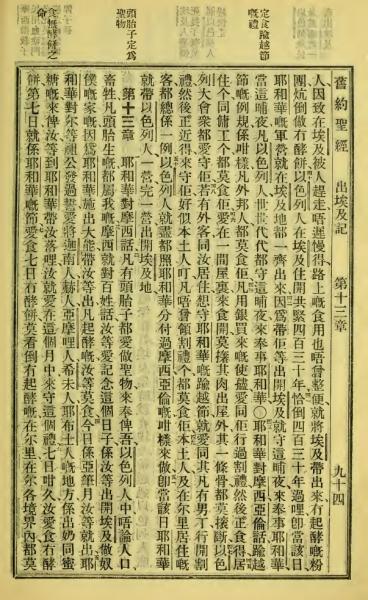 舊約聖經　出埃及記　第十三章　九十四
定食踰越節
嘅禮
頭胎子定爲
聖物
食無酵餅之
命
人因致在埃及被人趕走唔遲慢得路上嘅食用也唔曾整便就將埃及帶出來冇起酵嘅粉
團炕倒做冇酵餅以色列人在埃及住開共緊四百三十年恰倒四百三十年過哩即當該日
耶和華嘅軍營就在埃及地都一齊出來因爲帶佢等出開埃及就守這晡夜來奉事耶和華
當這晡夜凡以色列人世世代代都守這晡夜來奉事耶和華○耶和華對摩西亞倫話踰越
節嘅例規係咁樣凡外邦人都莫食佢凡用銀買來嘅使儘愛同佢行過割禮然後正食得居
住个同傭工个都莫食佢愛在一間屋裏來食開莫攐其肉出屋外其一條骨都莫㧻斷以色
列大會衆都愛守佢若有外客同汝居住想守耶和華嘅踰越節就愛同其凡有男丁行開割
禮然後正近得來守佢好似本土人一咑凡唔曾領割禮个都莫食佢本土人及在尔里居住嘅
客都總係一例以色列人就盡都照耶和華分付過摩西亞倫嘅咁樣來做即當該日耶和華
就帶以色列人一營完一營出開埃及地
第十三章　耶和華對摩西話凡有頭胎子都愛做聖物來奉俾吾以色列人中唔論人口
畜牲凡頭胎生嘅都屬我嘅摩西就對百姓話汝等愛記念這個日子係汝等出開埃及做奴
僕嘅家嘅因爲耶和華施出大能帶汝等出凡起酵嘅汝等莫食今日係亞筆月汝等就出
和華對尔等祖公發過誓愛將迦南人赫人亞摩哩人希未人耶布士人嘅地方係出奶同蜜
糖嘅來俾汝等到耶和華帶汝落哩汝就愛在這個月中來守這個禮七日咁久汝愛食冇酵
餅第七日就係耶和華嘅節愛食七日冇酵餅莫看倒有起酵嘅在尔里在尔各境界內都莫